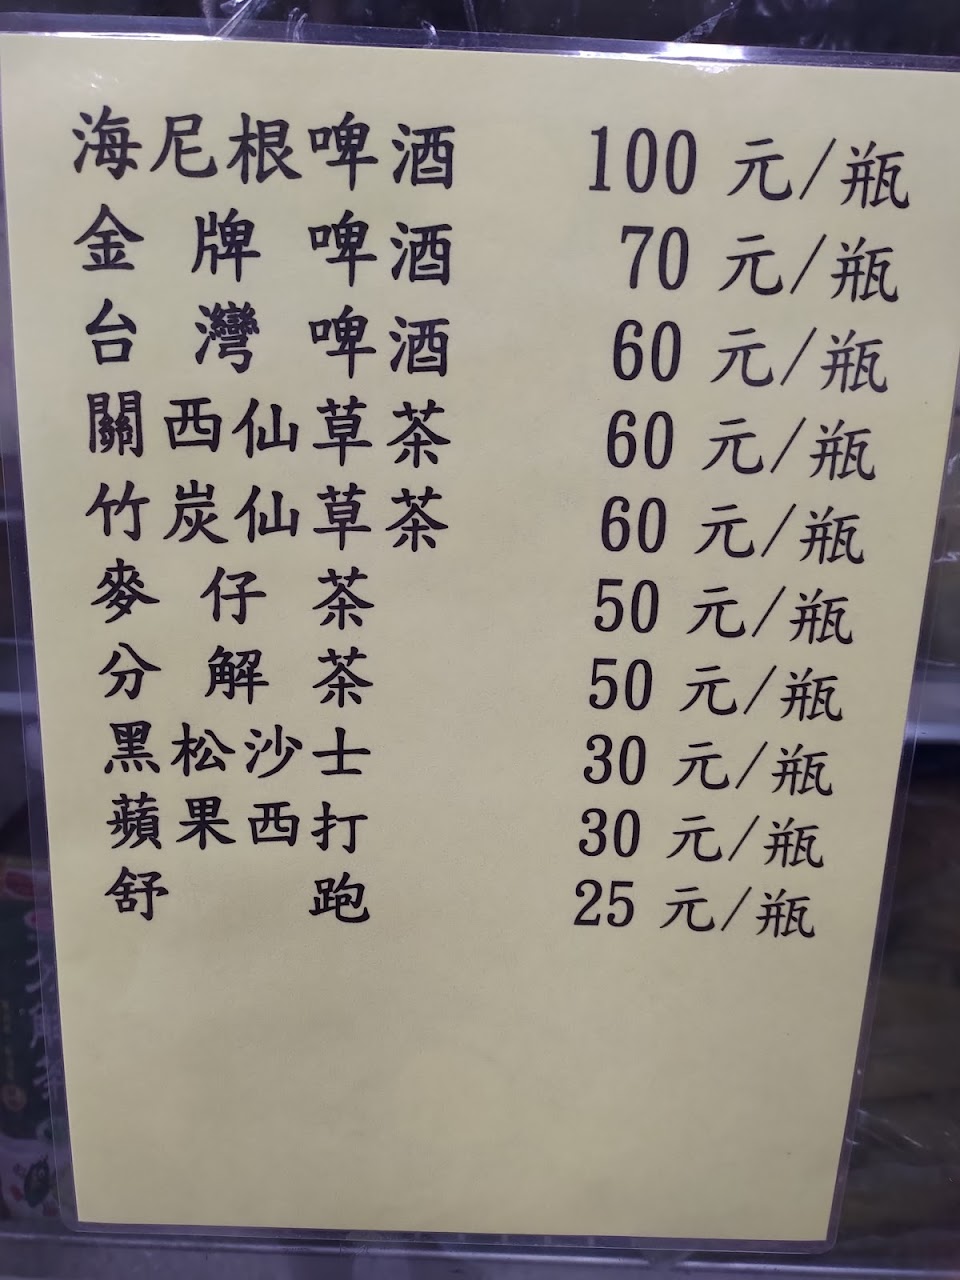 海尼根啤酒 100 元/瓶
金牌啤酒 70 元/瓶
台灣啤酒 60 元/瓶
關西仙草茶 60 元/瓶
竹炭仙草茶 60 元/瓶
麥仔茶 50 元/瓶
分解茶 50 元/瓶
黑松沙士 30 元/瓶
蘋果西打 30 元/瓶
舒跑 25 元/瓶